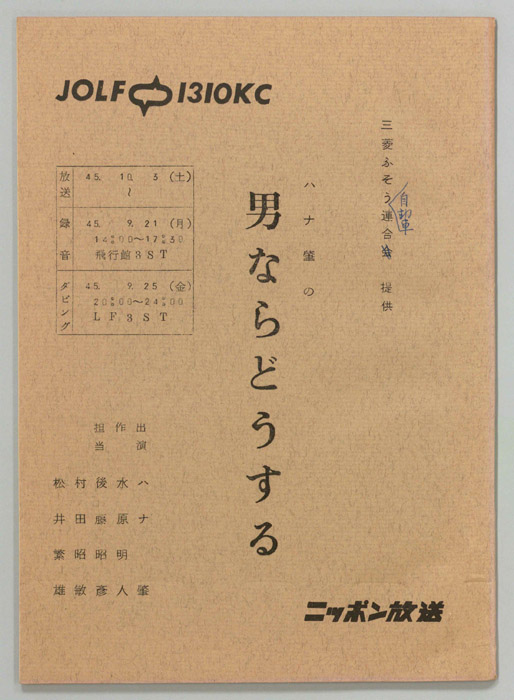 JOLF 1310KC
三菱ふそう自動車連合会 提供
ハナ肇の
男ならどうする
放送 45. 10. 3 (土)
～
録音 45. 9. 21 (月)
14時00～17時30
飛行館3ST
ダビング 45. 9. 25 (金)
20時00～24時00
LF3ST
出演 ハナ肇
水原明人
作 後藤昭彦
村田昭敏
担当 松井繁雄
ニッポン放送